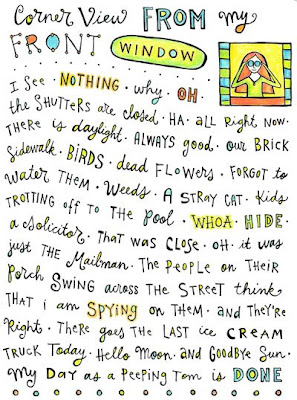 Corner View FROM my
FRONT WINDOW
I See · NOTHING · why · OH ·
the SHUTTERS are closed · HA · all Right Now ·
THERE is daylight · ALWAYS good · our BRICK
Sidewalk · BIRDS · dead FLOWERS · FORGOT to
WATER THEM · Weeds · A STRAY CAT · Kids
TROTTING off TO the Pool · WHOA · HIDE ·
a Solicitor · THAT was CLOSE · OH · it was
just THE Mailman · The PEOPLE on THEIR
PORCH SWING across THE STREET think
THAT i am SPYING on THEM · and they're
Right · THERE goes THE LAST ice CREAM
TRUCK Today · Hello Moon and Goodbye Sun ·
My DAY as a PEEPING TOM is DONE